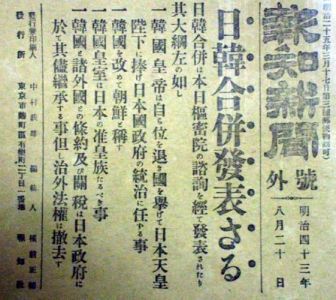 報知新聞
號外
明治四十三年
八月二十日
日韓合併發表さる
日韓合併は本日樞密院の諮詢を經て發表されたり
其大綱左の如し
一韓國皇帝は自ら位を退き國を擧げて日本天皇
陛下に捧げ日本國政府の統治に任ずる事
一韓國を改めて朝鮮と稱す
一韓國皇室は日本の准皇族たるべき事
一韓國と諸外國との條約及び關税は日本政府に
於て其儘繼承する事但し治外法權は撤去す
發行兼印刷人 中村 編輯人
發行所 東京市麹町區有樂町二丁目一番地 報知社